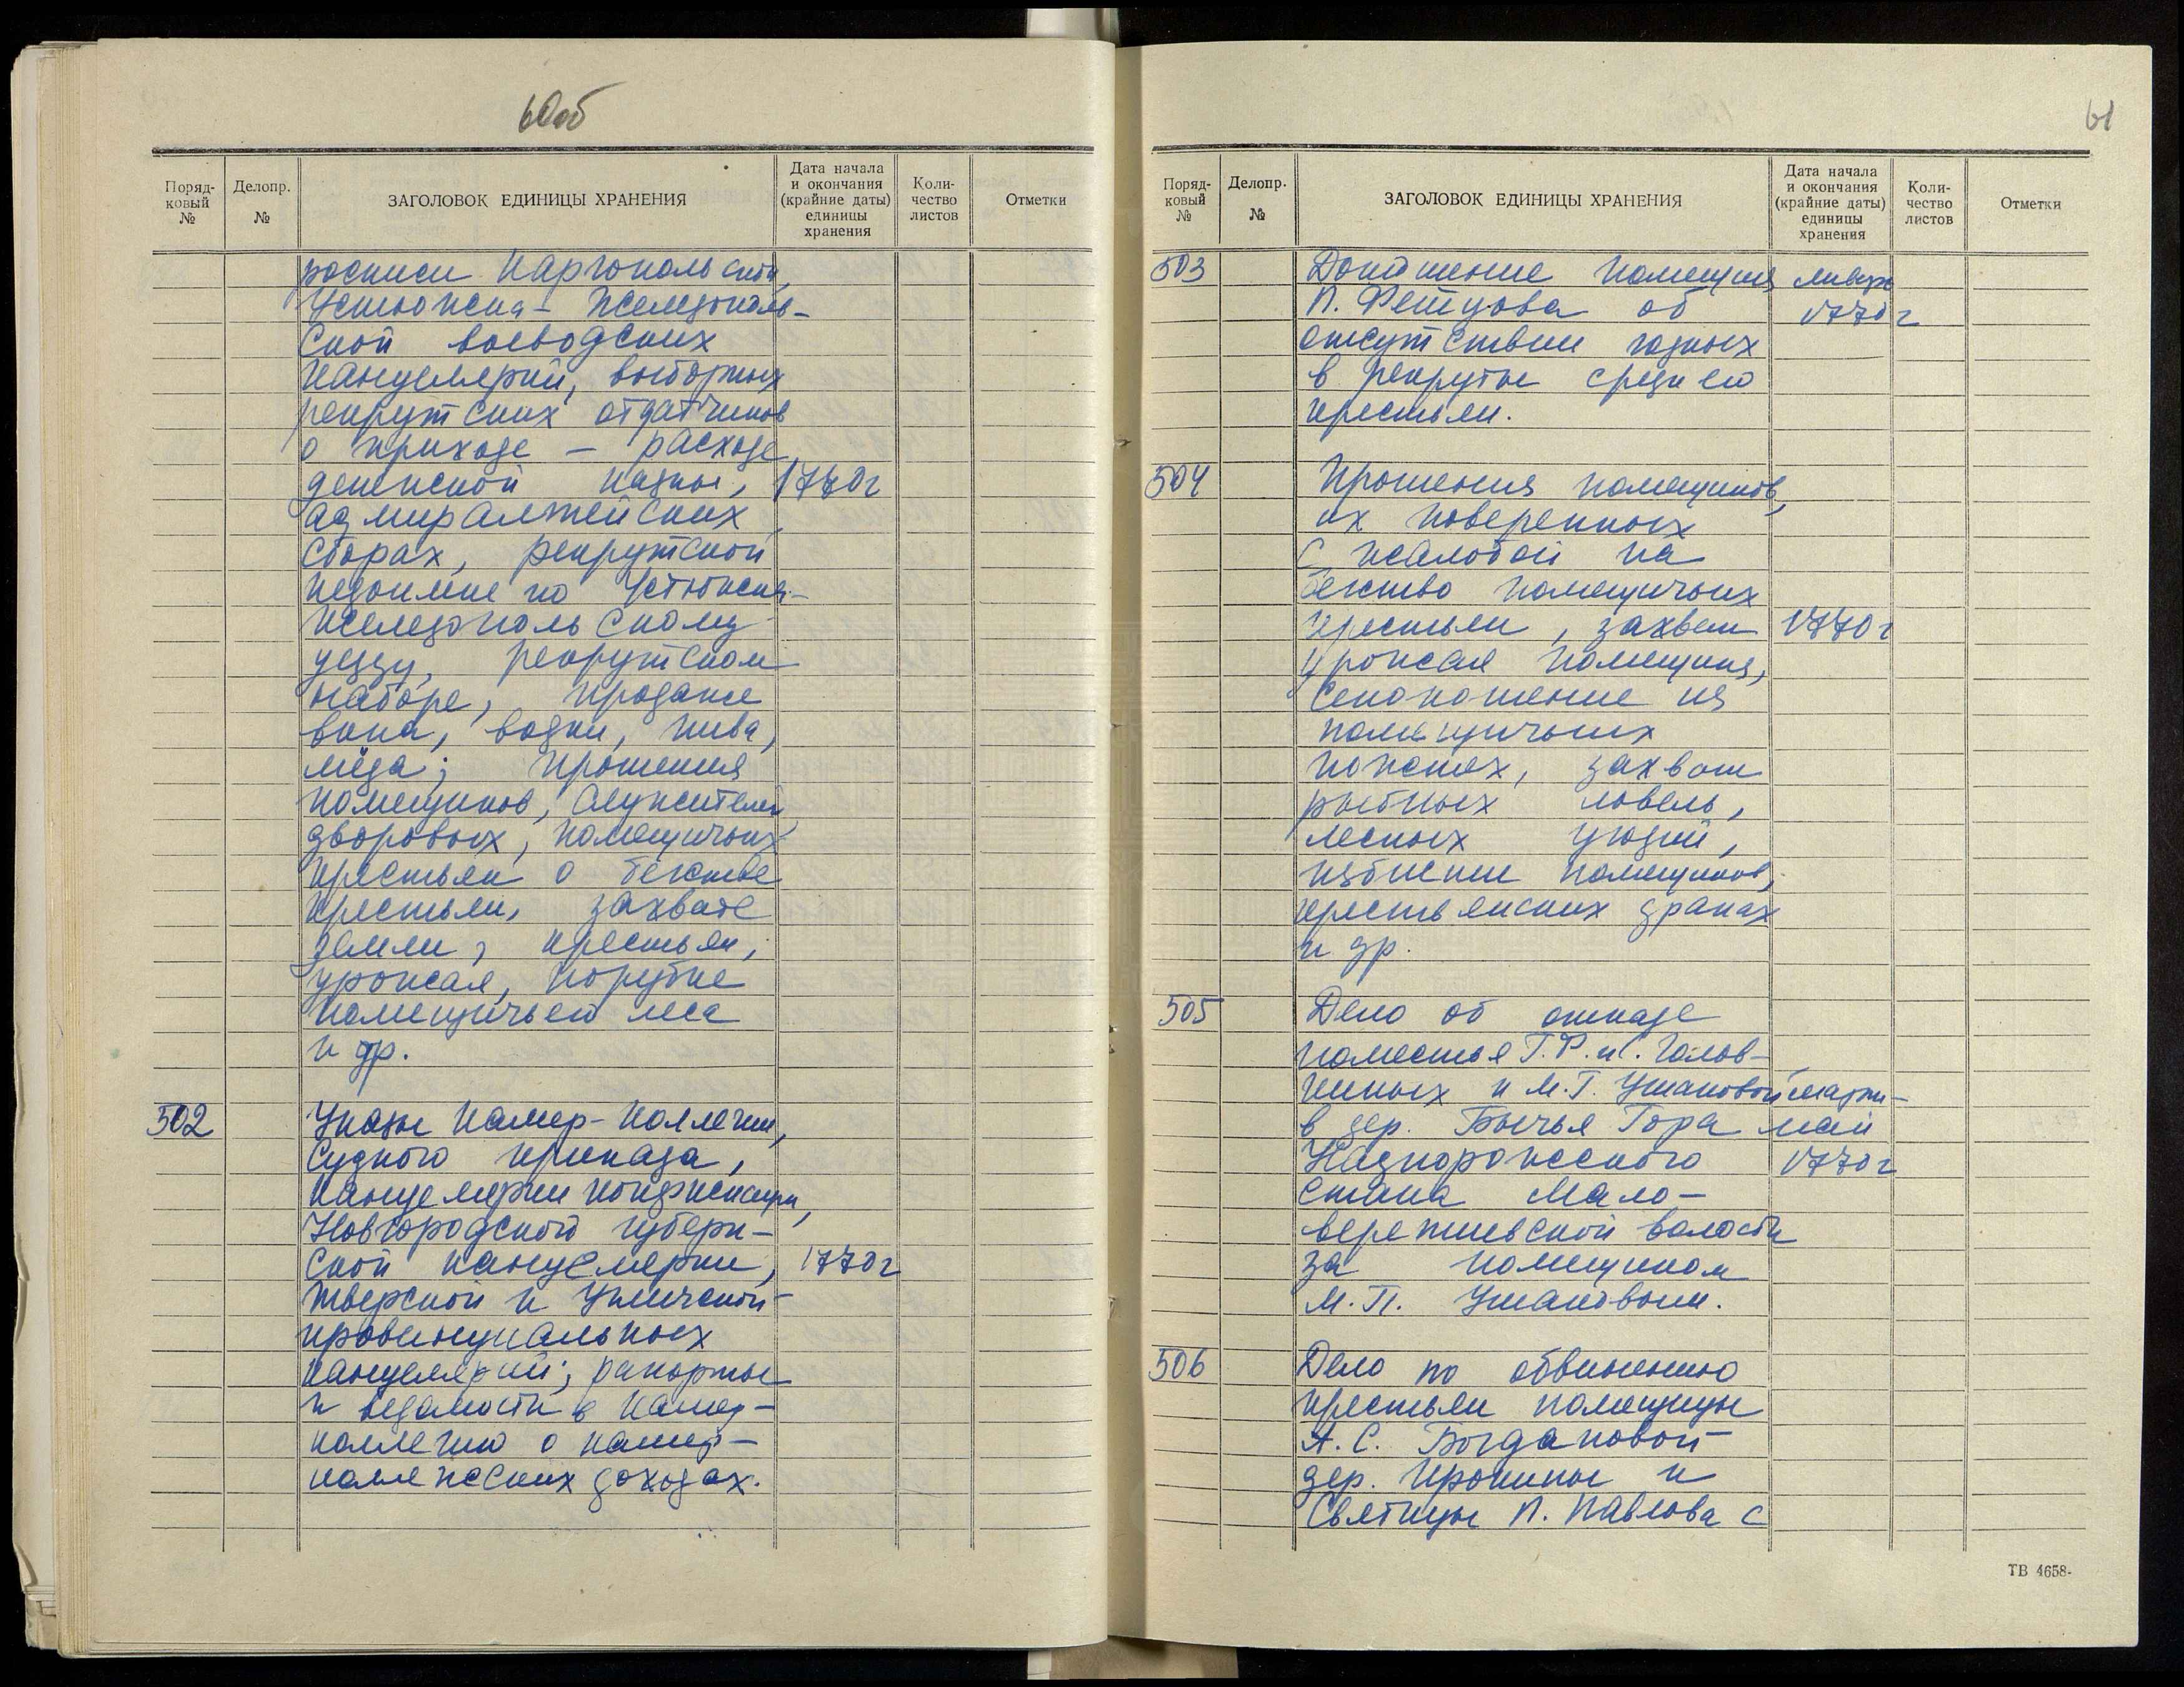 60об
Поряд-
ковый
№
Делопр.
№
ЗАГОЛОВОК ЕДИНИЦЫ ХРАНЕНИЯ
Дата начала
и окончания
(крайние даты)
единицы
хранения
Коли-
чество
листов
Отметки
росписи Каргопольской,
Устюжна-Железополь-
ской воеводских
канцелярий, выборных
рекрутских отдатчиков
о приходе - расходе
денежной казны, 1770г
адмиралтейских
сборах, рекрутской
недоимке по Устюжна-
Железопольскому
уезду, рекрутском
наборе, продаже
вина, водки, пива,
мёда; прошения
помещиков, служителей,
дворовых, помещичьих
крестьян о бегстве
крестьян, захвате
земли, крестьян,
урожая, порубке
помещичьего леса
и др.
502 Указы Камер-коллегии,
Судного приказа,
Канцелярии конфискации,
Новгородской губерн-
ской канцелярии, 1770г
Тверской и Угличской
провинциальных
канцелярий; рапорты
и ведомости в Камер-
коллегию о камер-
коллежских доходах.
61
Поряд-
ковый
№
Делопр.
№
ЗАГОЛОВОК ЕДИНИЦЫ ХРАНЕНИЯ
Дата начала
и окончания
(крайние даты)
единицы
хранения
Коли-
чество
листов
Отметки
503 Доношение помещика январь
П. об 1770г
отсутствии годных
в рекруты среди его
крестьян.
504 Прошения помещиков,
их поверенных
с жалобой на
бегство помещичьих
крестьян, захват 1770г
урожая помещика,
сенокошение на
помещичьих
пожнях, захват
рыбных ловель,
лесных угодий,
избиение помещиков,
крестьянских драках
и др.
505 Дело об отказе
поместья Г.Ф. и С. Голов-
чиных и М.Г. Ушаковой март-
в дер. Бычья Гора май
Надпорожского 1770г
стана Мало-
волости
за помещиком
М.П. Ушаковым.
506 Дело по обвинению
крестьян помещицы
А.С. Богдановой
дер. и
П. Павлова с
ТВ 4658-